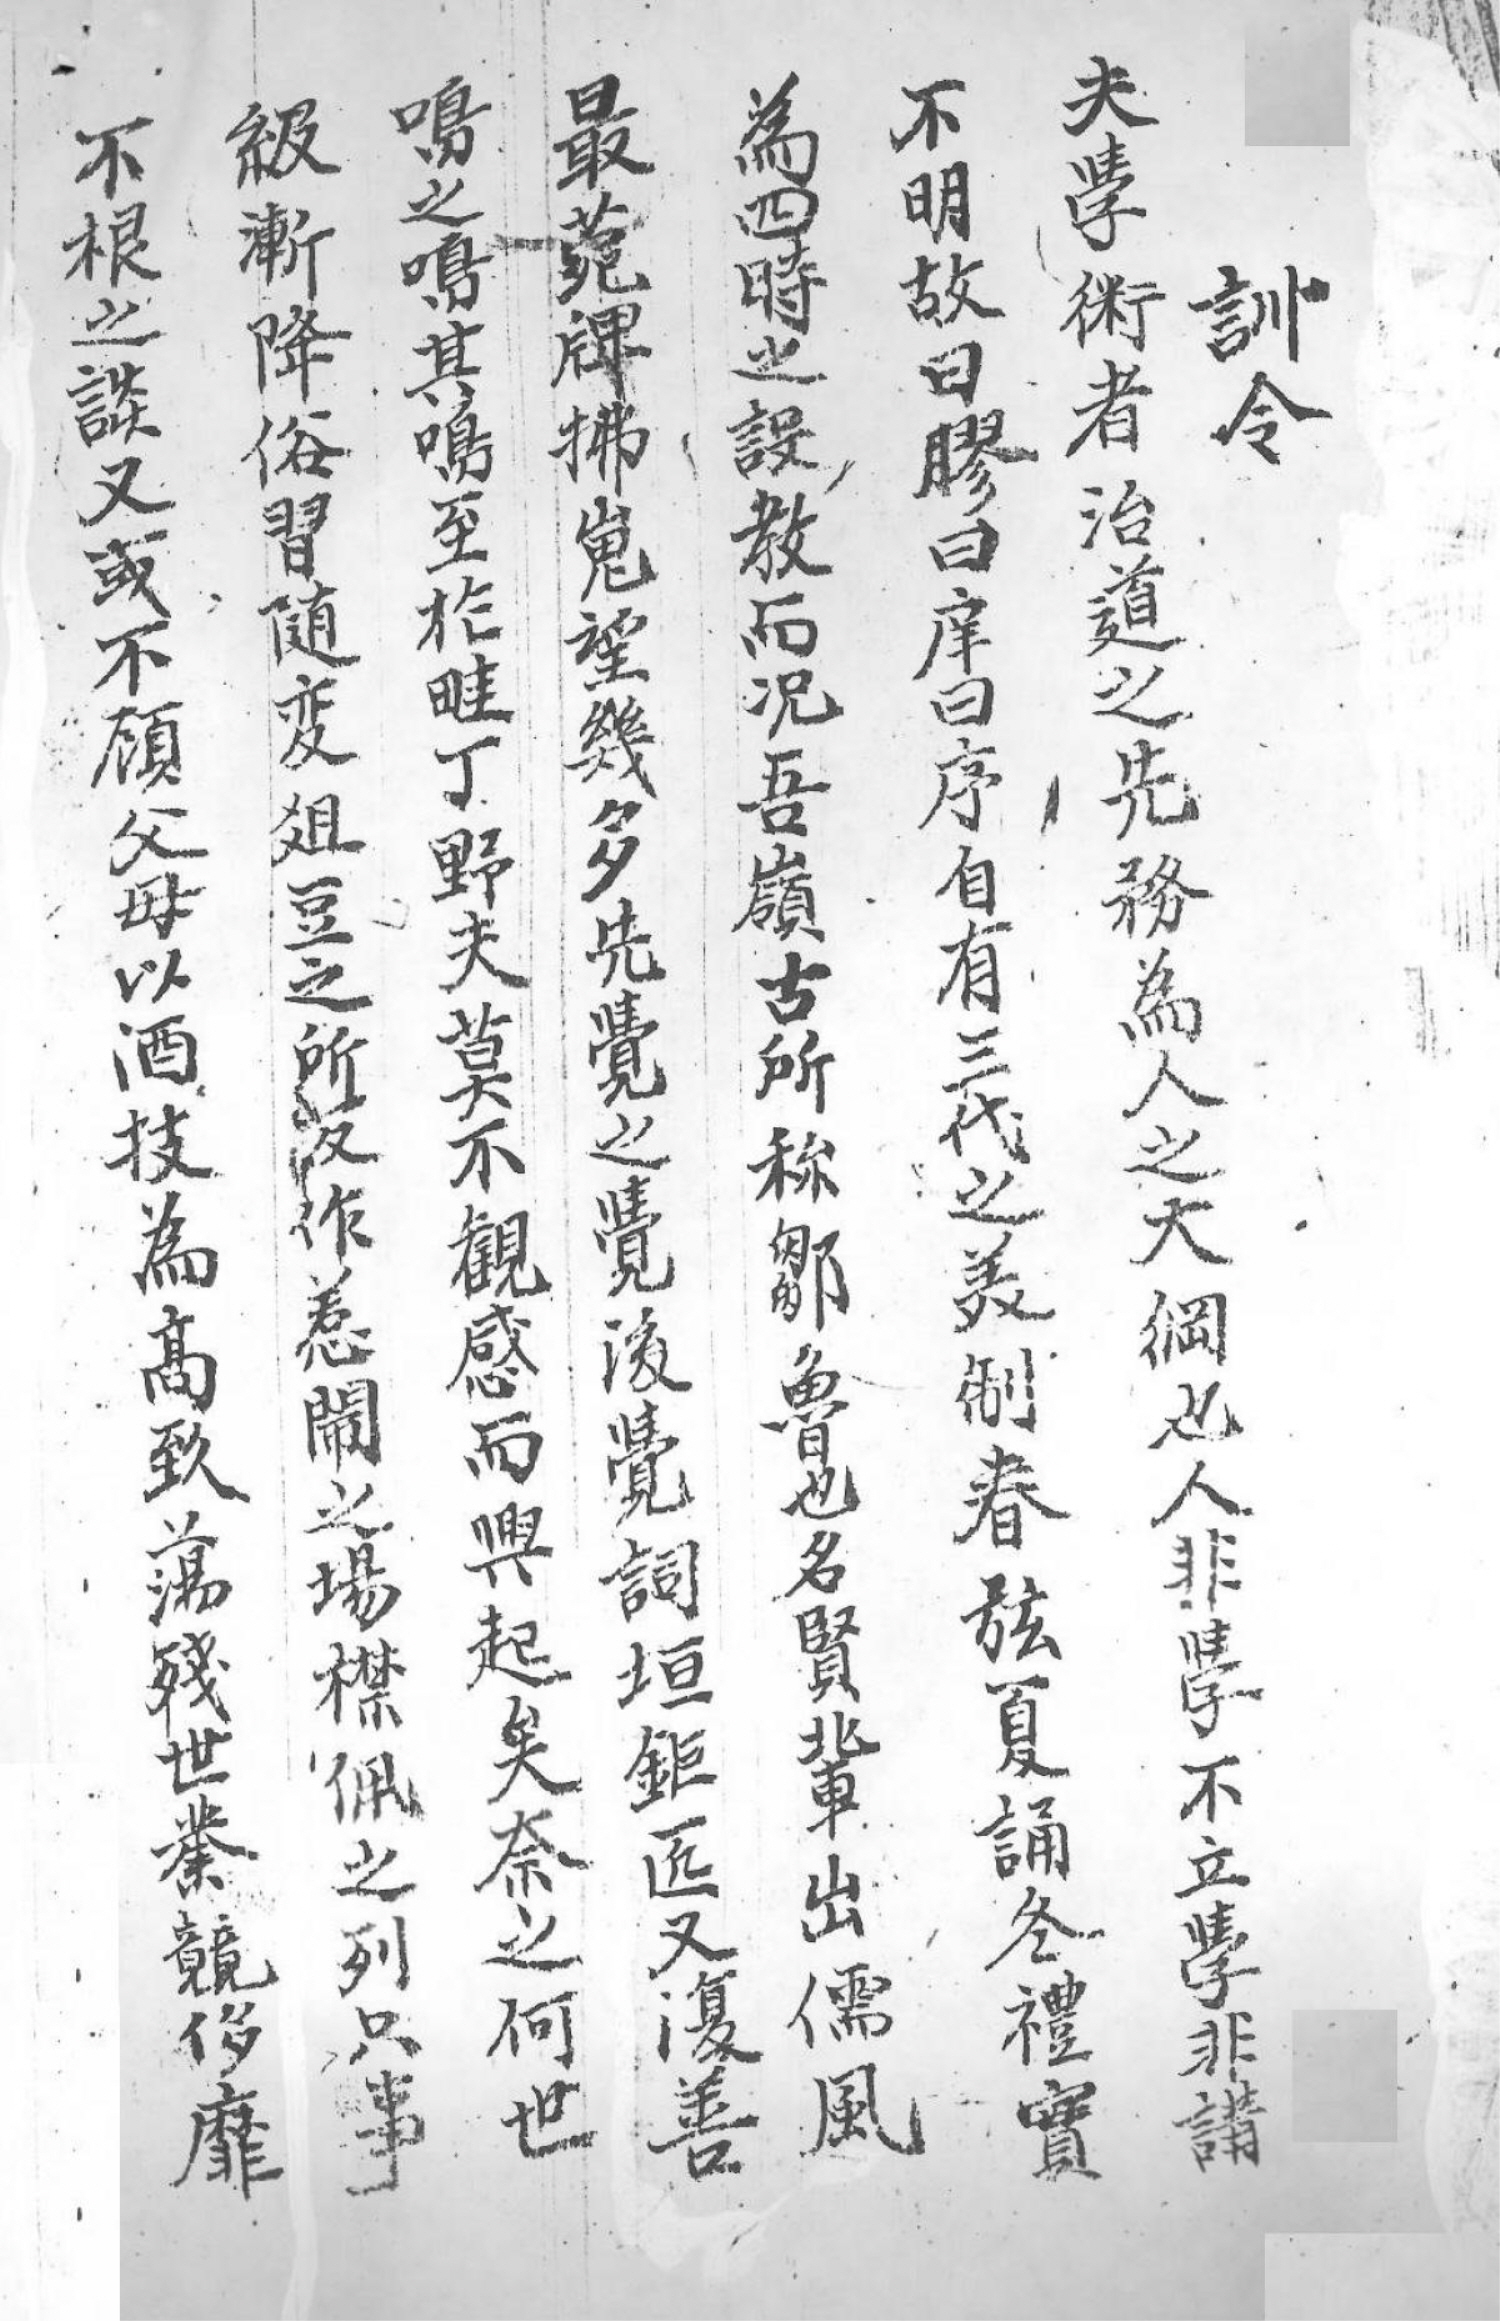 訓令
夫學術者治道之先務為人之大綱也人非學不立學非講
不明故曰膠曰庠曰序自有三代之美制春弦夏誦冬禮實
為四時之設教而况吾嶺古所称鄒魯也名賢輩出儒風
最菀禆拂嵬望幾多先覺之覺後覺詞垣鉅匠又復善
鳴之鳴其鳴至於畦丁野夫莫不観感而興起矣奈之何世
級漸降俗習随変俎豆之所反作惹鬧之場襟佩之列只事
不根之談又或不顧父母以酒技為高致蕩殘世業競侈靡